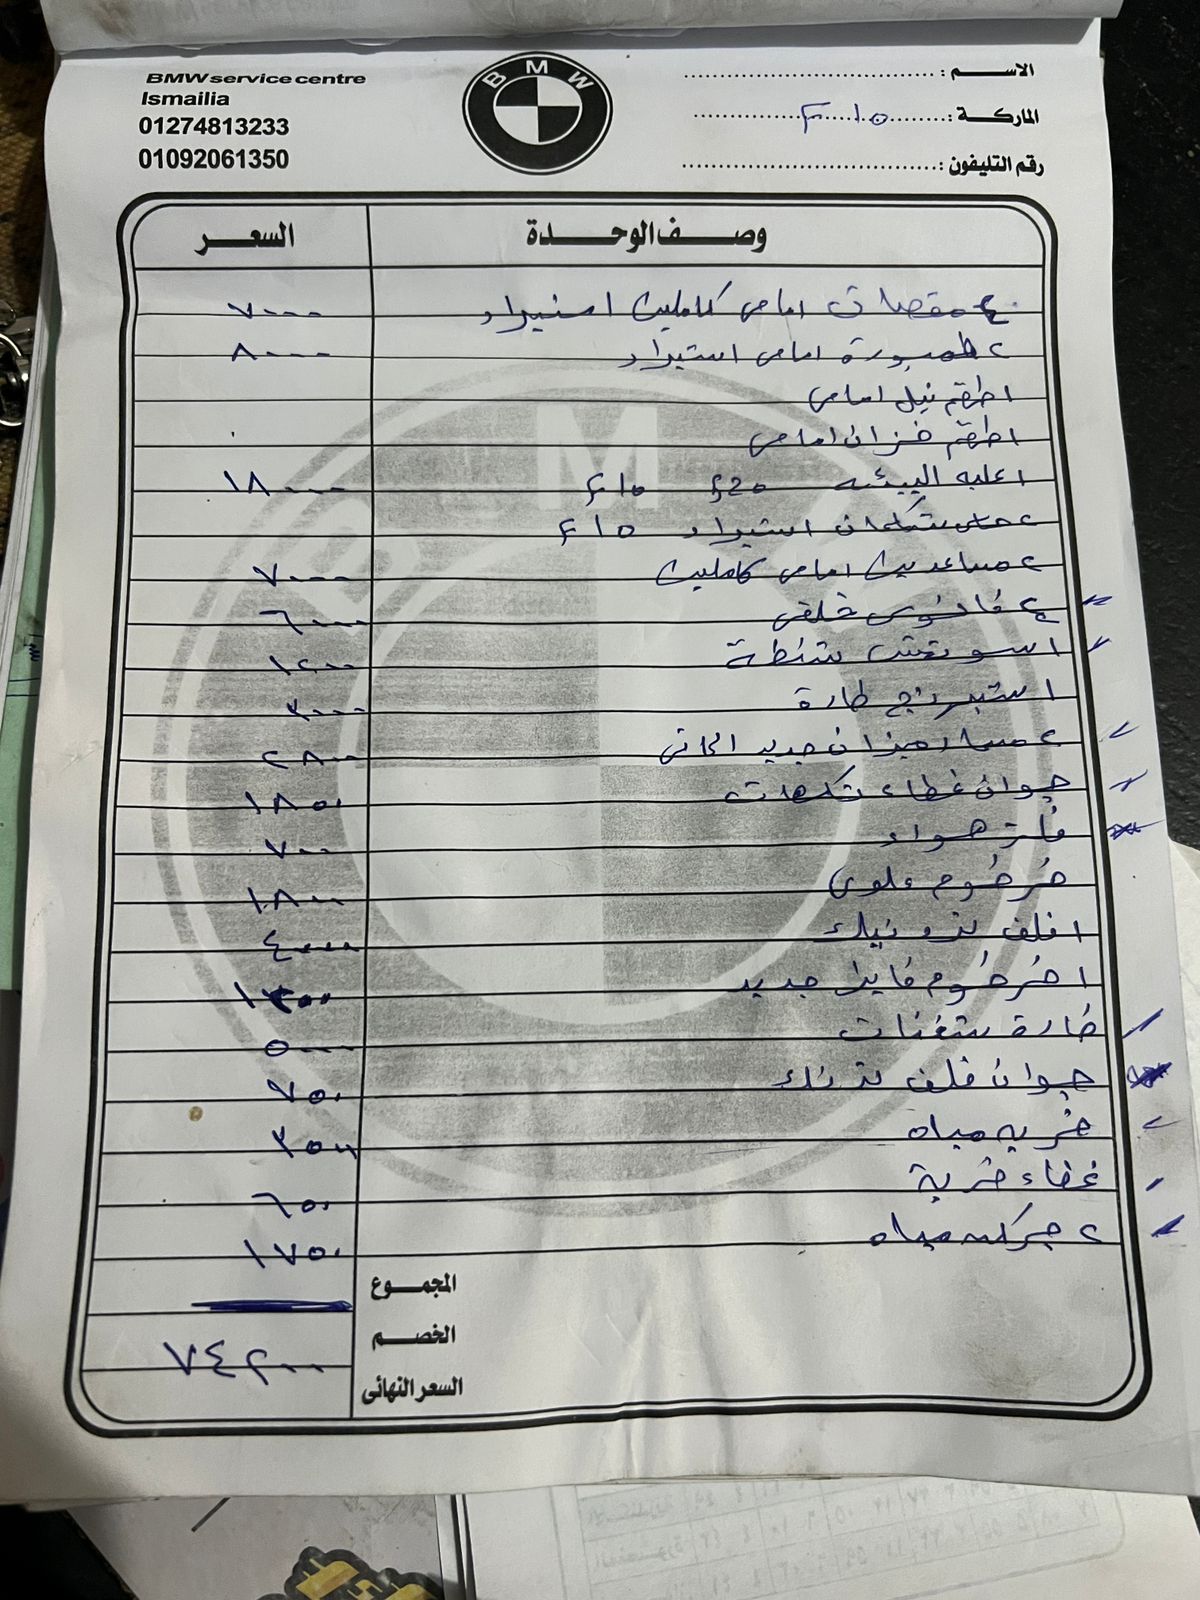 BMW service centre
Ismailia
01274813233
01092061350
BMW
الاسم :
الماركة : F10
رقم التليفون :
وصف الوحدة السعر
٤ مقصات امامى كامليت استيراد ٧٠٠٠
٢ طمبورة امامى استيراد ٨٠٠٠
ا طقم تيل امامى
ا طقم خزان امامى
ا علبه البيئه F20 F10 ١٨٠٠٠
٢ استيراد F10
٢ مساعدين امامى كامليت ٧٠٠٠
٤ فانوس خلفى ٦٠٠٠
ا سوتش شنطة ١٢٠٠
ا ستبرنج طارة ٣٠٠٠
٢ مسمار ميزان جديد المانى ٢٨٠٠
جوان غطاء تكهات ١٨٥٠
فلتر هواء ٧٠٠
خرطوم علوى ١٨٠٠
ا فلف ٤٠٠٠
ا خرطوم جديد
طارة شفنات ٥٠٠٠
جوان فلف ٧٥٠
خربه مياه ٣٥٠٠
غطاء خربة ٦٥٠
٢ جركن مياه ١٧٥٠
المجموع
الخصم
السعر النهائى ٧٤٢٠٠